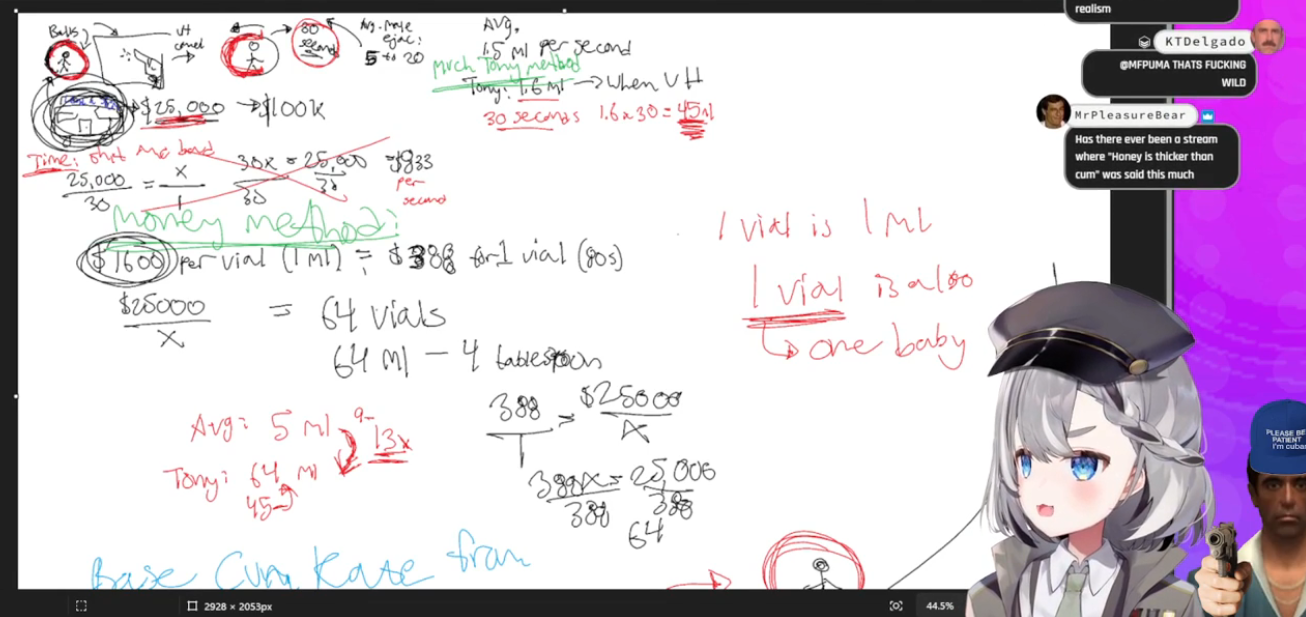 Balls
VH
30
second
Avg. male
ejac:
5 to 20
Avg.
1.5 ml per second
Much Tony method
Tony: 1.6 ml → when VH
30 seconds 1.6 x 30 = 45 ml
$25,000 → $100K
Time:
25,000 / 30 = x / 1
30x / 30 = 25,000 / 30 = $833
per
second
Money method:
$1600 per vial (1 ml) = $388 for 1 vial (80s)
$25000 / x = 64 vials
64 ml - 4 tablespoon
1 vial is 1 ml
1 vial is also
→ one baby
Avg: 5 ml 9-13x
Tony: 64 ml
45
388 / 1 = $25000 / x
388x / 388 = 25,000 / 388
64
Base Cum Kate from
2928 × 2053px
44.5%
realism
KTDelgado
@MFPUMA THATS FUCKING
WILD
MrPleasureBear
Has there ever been a stream
where "Honey is thicker than
cum" was said this much
PLEASE BE
PATIENT
I'm cuban